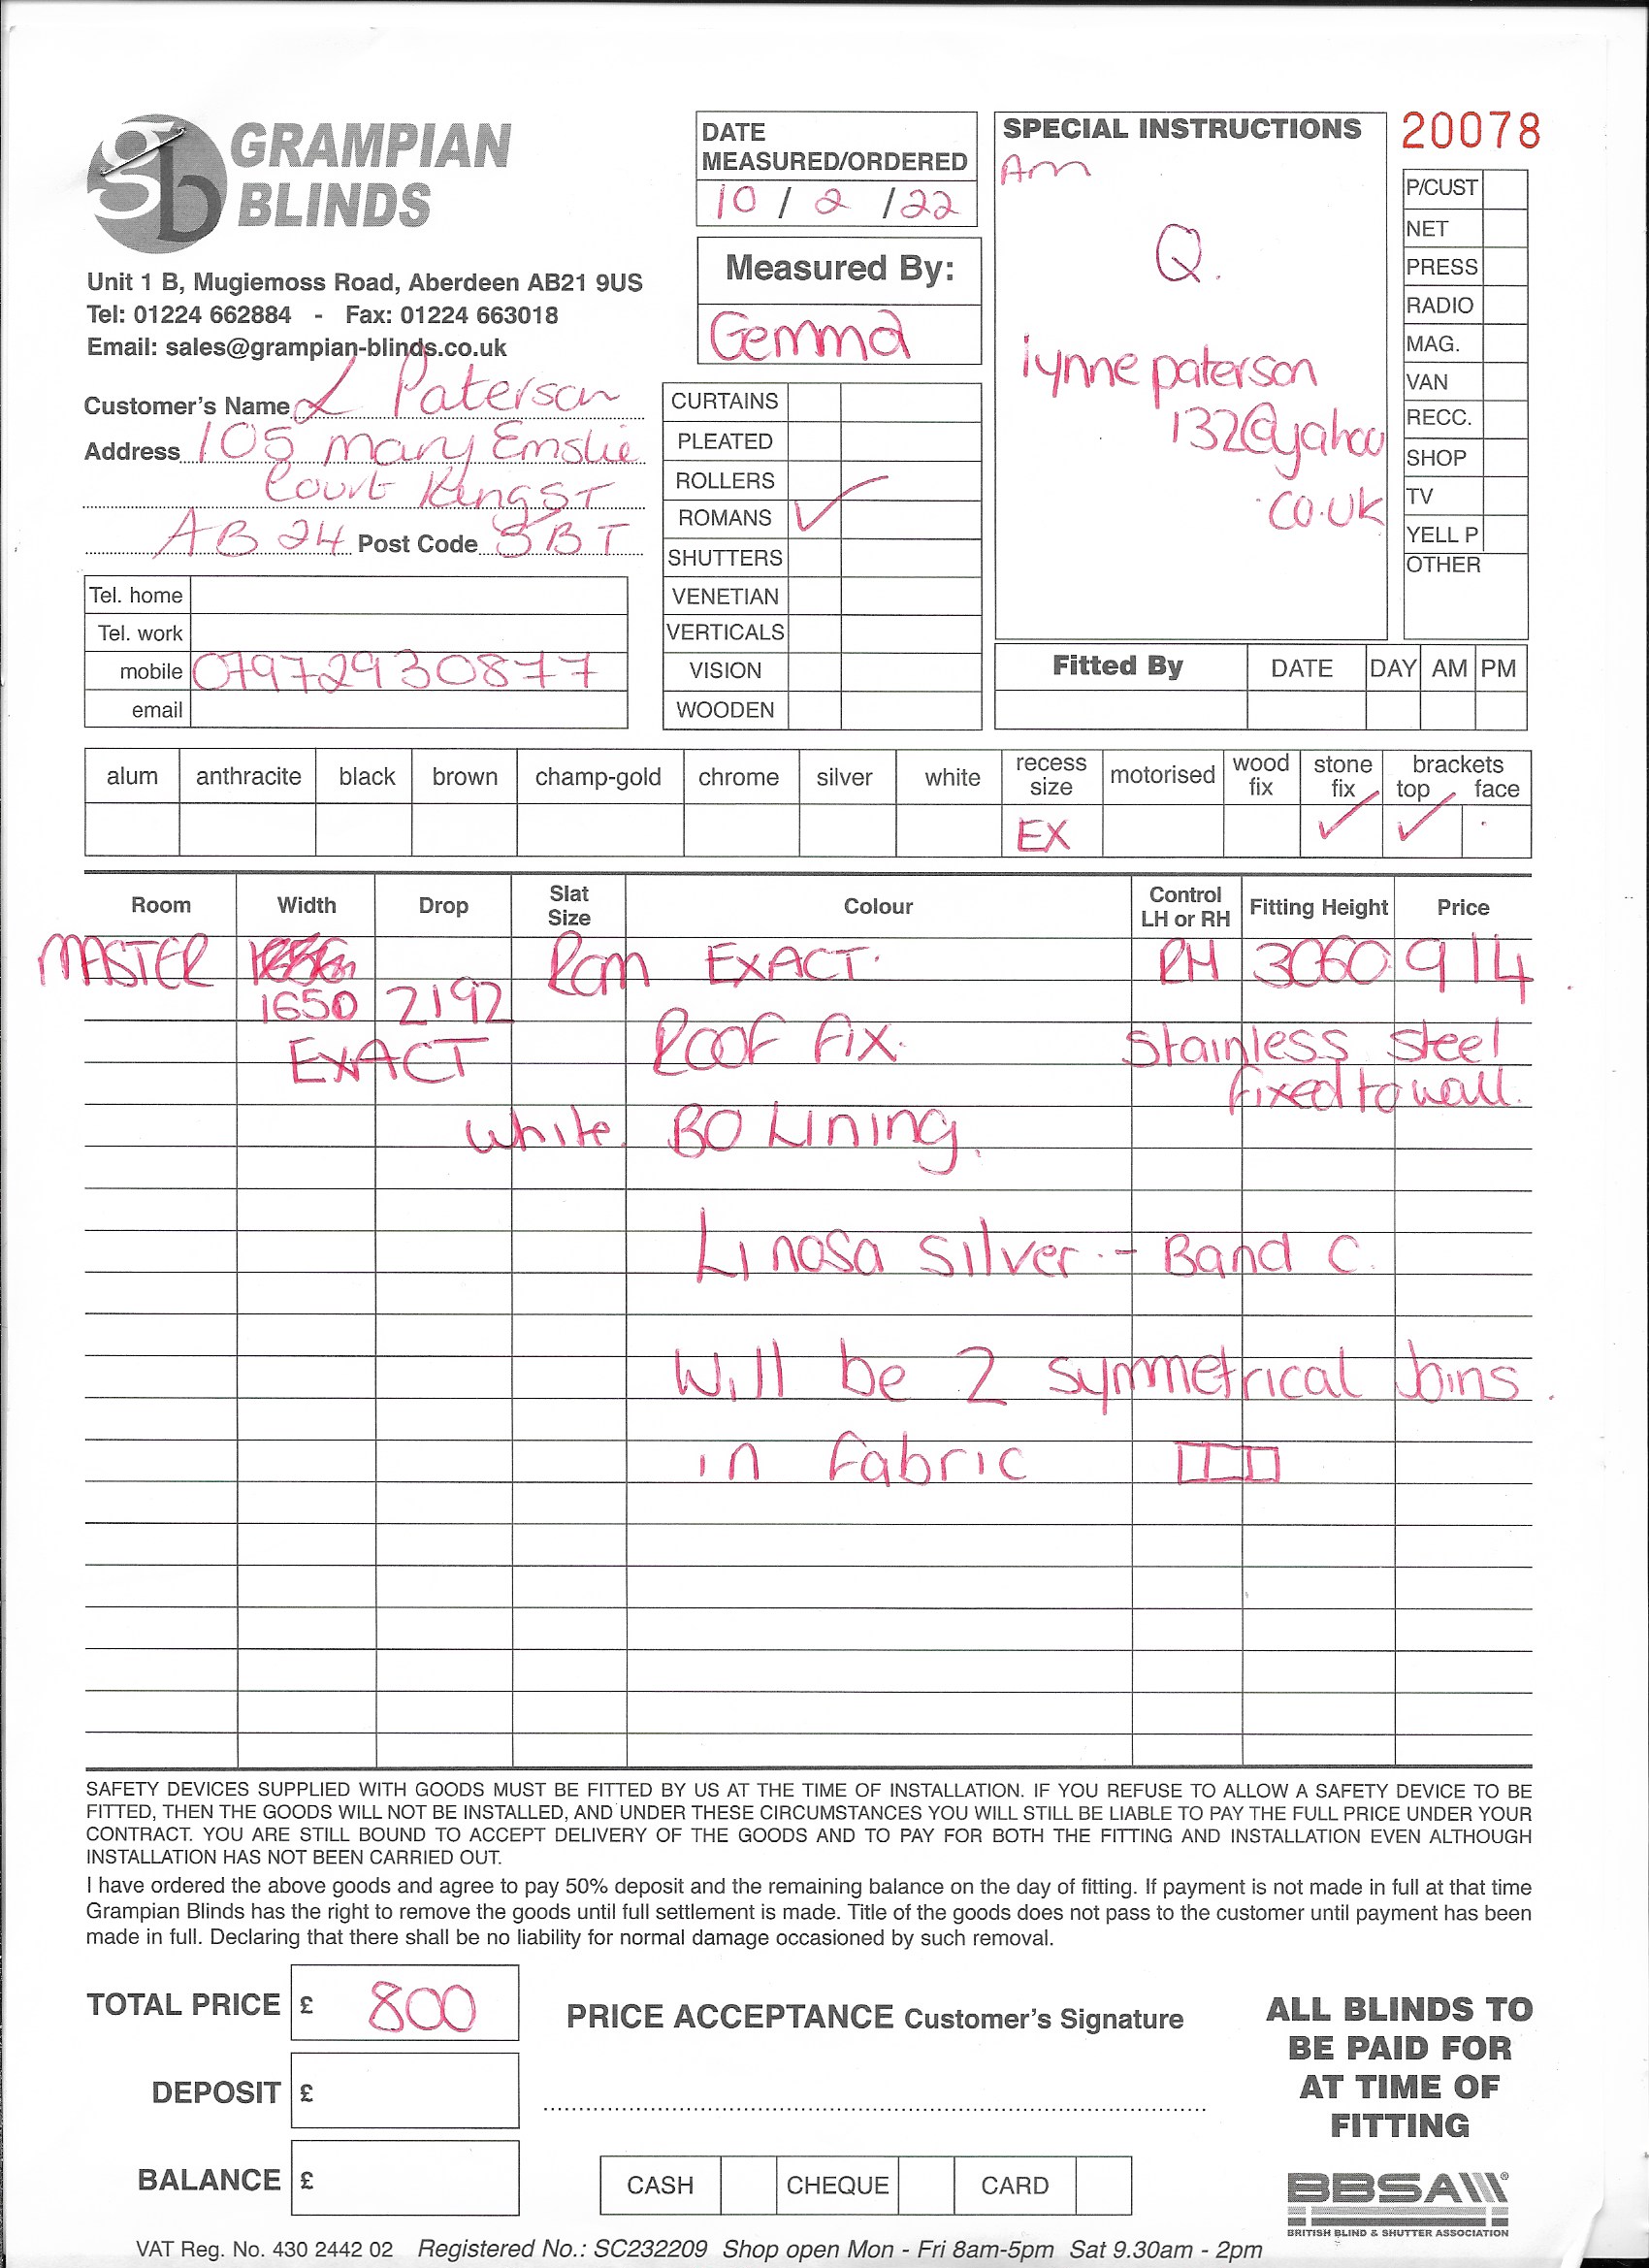 gb GRAMPIAN
BLINDS
Unit 1 B, Mugiemoss Road, Aberdeen AB21 9US
Tel: 01224 662884 - Fax: 01224 663018
Email: sales@grampian-blinds.co.uk
Customer's Name L Paterson
Address 105 Mary Emslie
Court Kings ST
AB 24 Post Code 5BT
Tel. home
Tel. work
mobile 07972930877
email
DATE
MEASURED/ORDERED
10 / 2 / 22
Measured By:
Gemma
CURTAINS
PLEATED
ROLLERS
ROMANS ✓
SHUTTERS
VENETIAN
VERTICALS
VISION
WOODEN
SPECIAL INSTRUCTIONS
Am
Q.
lynne paterson
132@yahoo
co.uk
20078
P/CUST
NET
PRESS
RADIO
MAG.
VAN
RECC.
SHOP
TV
YELL P
OTHER
Fitted By DATE DAY AM PM
alum anthracite black brown champ-gold chrome silver white recess size motorised wood fix stone fix brackets top face
EX ✓ ✓
Room Width Drop Slat Size Colour Control LH or RH Fitting Height Price
MASTER Rom EXACT. RH 3060 914
1650 2192
EXACT ROOF FIX. Stainless steel
fixed to wall.
White BO Lining.
Linosa Silver - Band C
Will be 2 symmetrical Joins
in Fabric
SAFETY DEVICES SUPPLIED WITH GOODS MUST BE FITTED BY US AT THE TIME OF INSTALLATION. IF YOU REFUSE TO ALLOW A SAFETY DEVICE TO BE
FITTED, THEN THE GOODS WILL NOT BE INSTALLED, AND UNDER THESE CIRCUMSTANCES YOU WILL STILL BE LIABLE TO PAY THE FULL PRICE UNDER YOUR
CONTRACT. YOU ARE STILL BOUND TO ACCEPT DELIVERY OF THE GOODS AND TO PAY FOR BOTH THE FITTING AND INSTALLATION EVEN ALTHOUGH
INSTALLATION HAS NOT BEEN CARRIED OUT.
I have ordered the above goods and agree to pay 50% deposit and the remaining balance on the day of fitting. If payment is not made in full at that time
Grampian Blinds has the right to remove the goods until full settlement is made. Title of the goods does not pass to the customer until payment has been
made in full. Declaring that there shall be no liability for normal damage occasioned by such removal.
TOTAL PRICE £ 800
DEPOSIT £
BALANCE £
PRICE ACCEPTANCE Customer's Signature
CASH CHEQUE CARD
ALL BLINDS TO
BE PAID FOR
AT TIME OF
FITTING
BBSA
BRITISH BLIND & SHUTTER ASSOCIATION
VAT Reg. No. 430 2442 02 Registered No.: SC232209 Shop open Mon - Fri 8am-5pm Sat 9.30am - 2pm